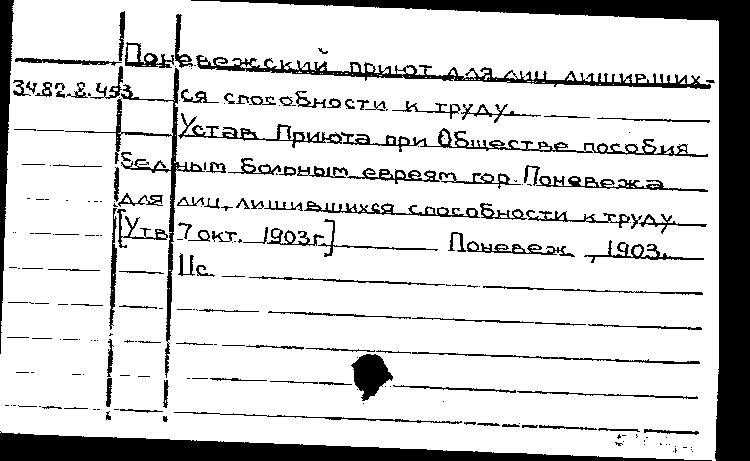 Поневежский приют для лиц, лишивших-
34.82.8.453 ся способности к труду.
Устав Приюта при Обществе пособия
бедным больным евреям гор. Поневежа
для лиц, лишившихся способности к труду.
[Утв. 7 окт. 1903 г.] Поневеж, 1903.
11с.